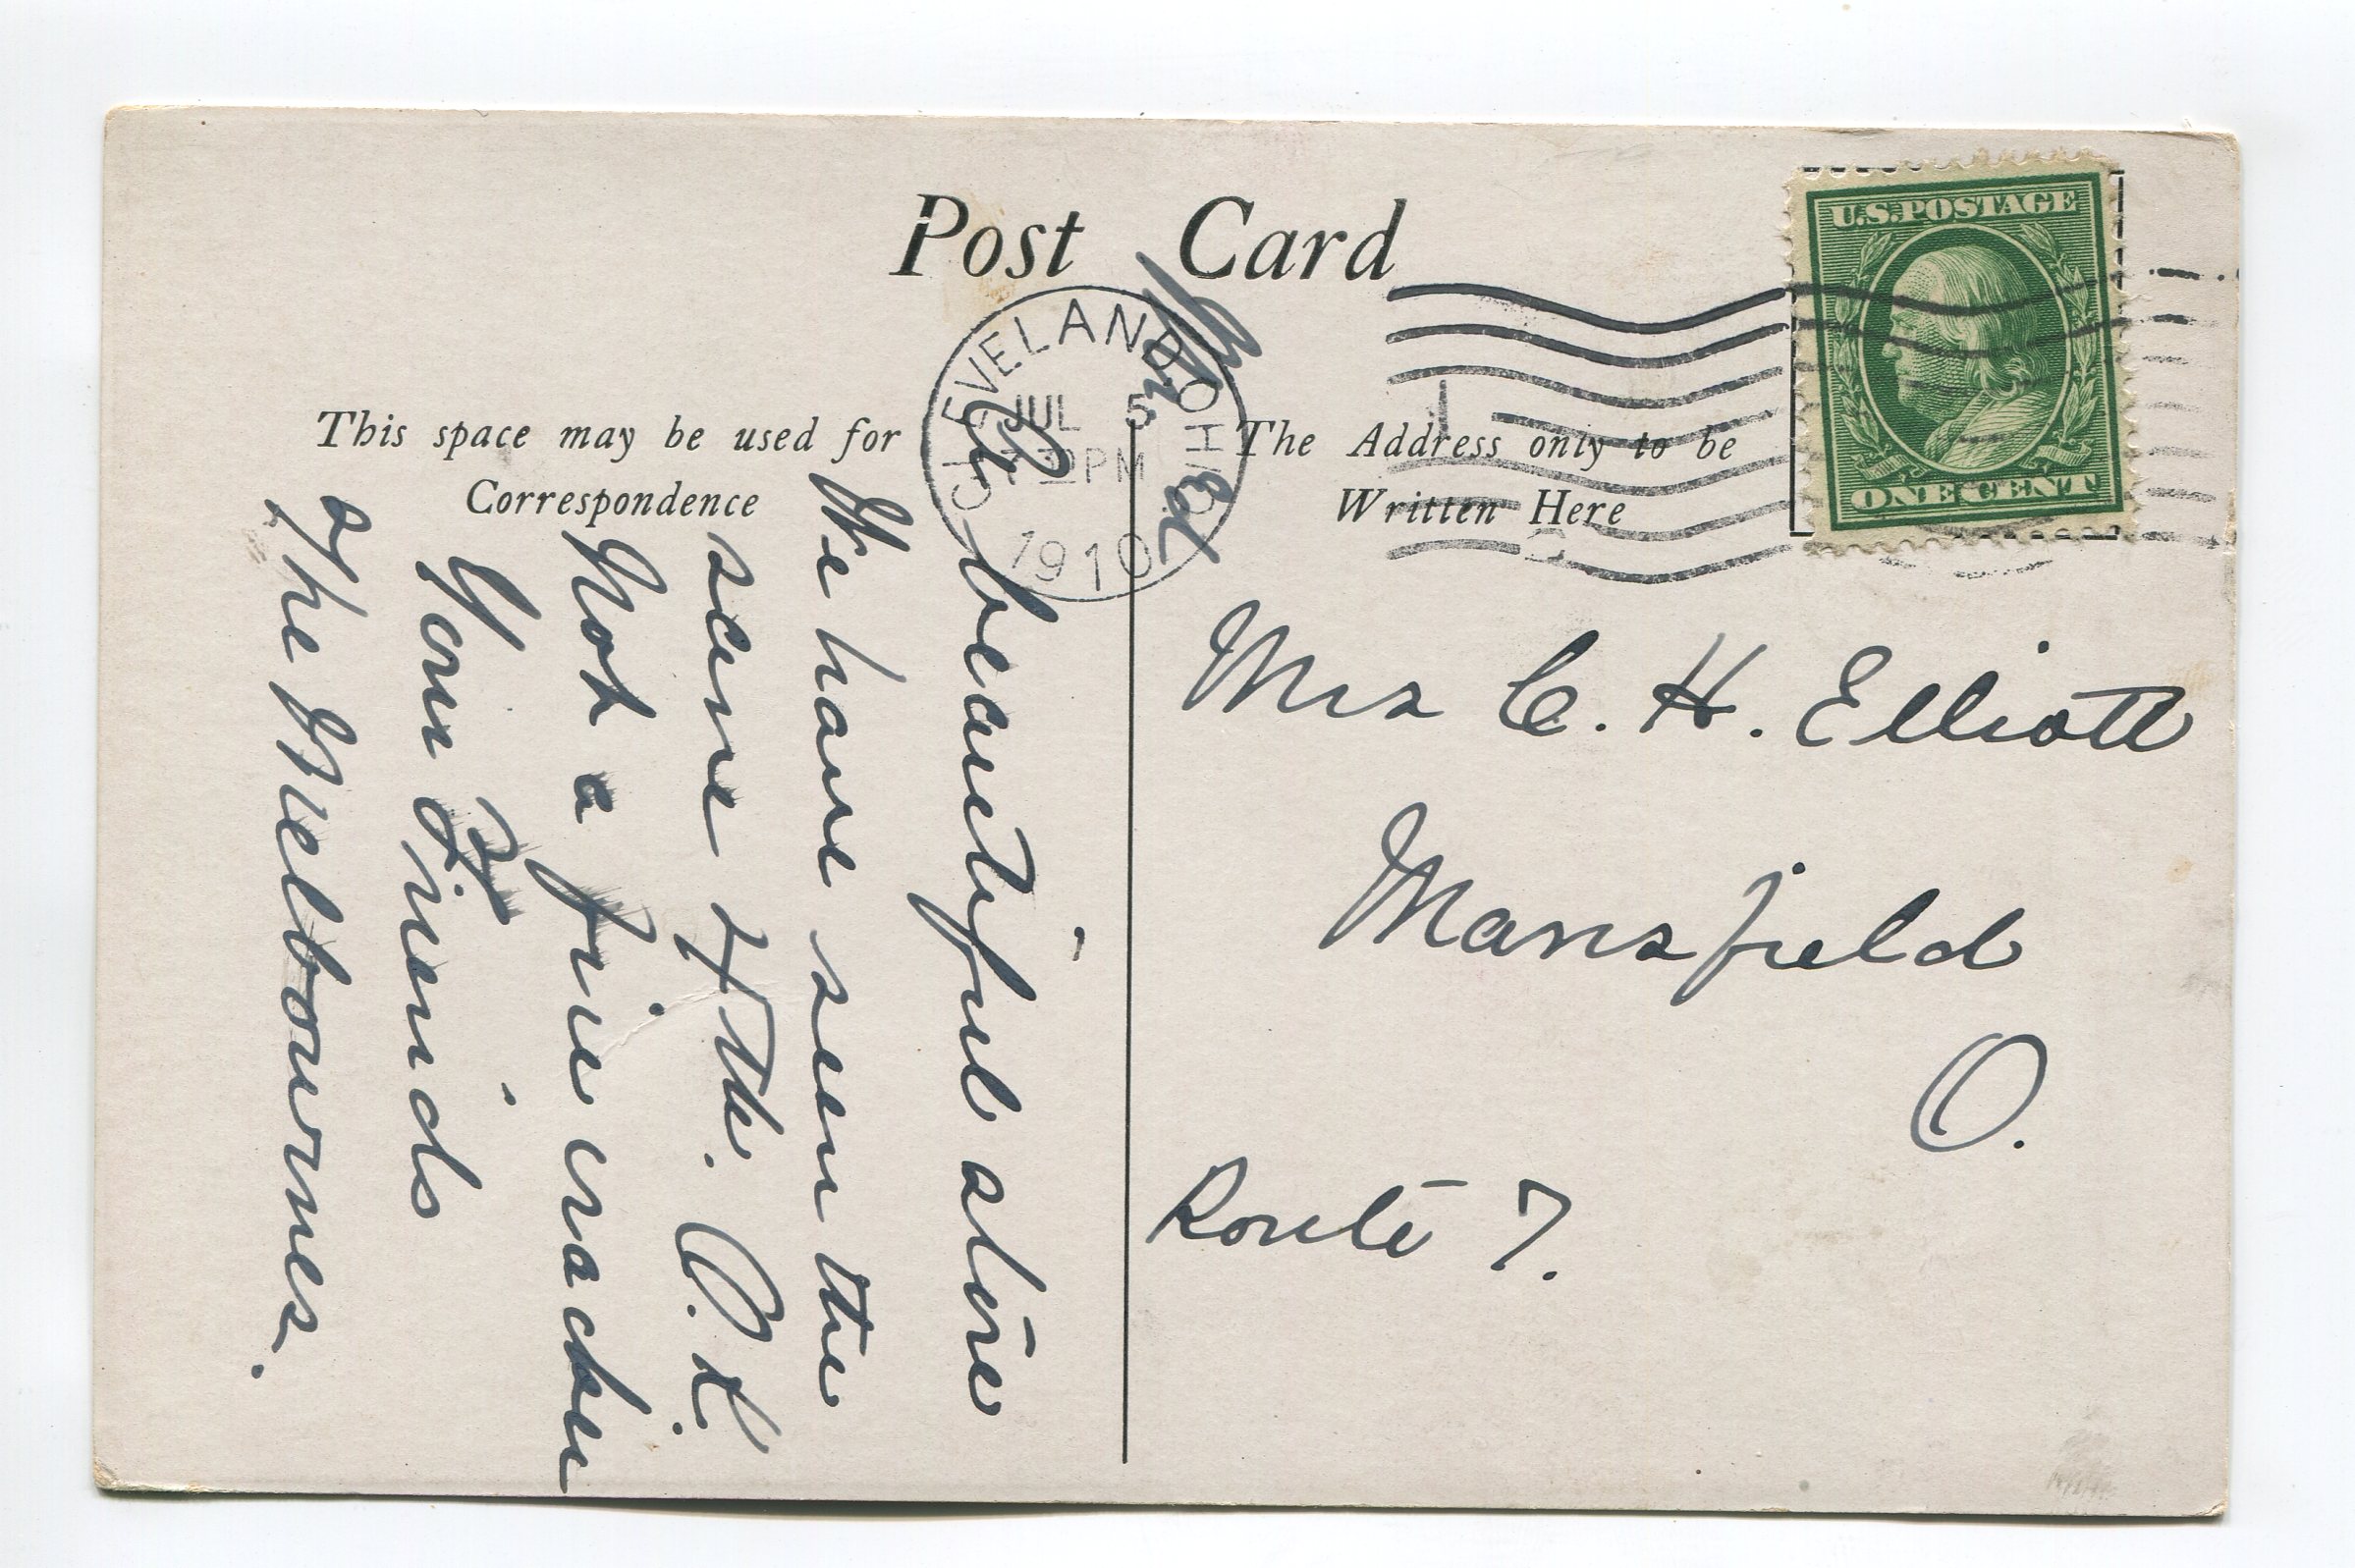 Post Card
CLEVELAND, OHIO
JUL 5
PM
1910
U.S. POSTAGE
ONE CENT
This space may be used for
Correspondence
The Address only to be
Written Here
beautiful
We have seen the
scene 4 O.K.
Not a fire cracker
Your Friends
The Melbournes.
Mrs C. H. Elliott
Mansfield
O.
Route 7.